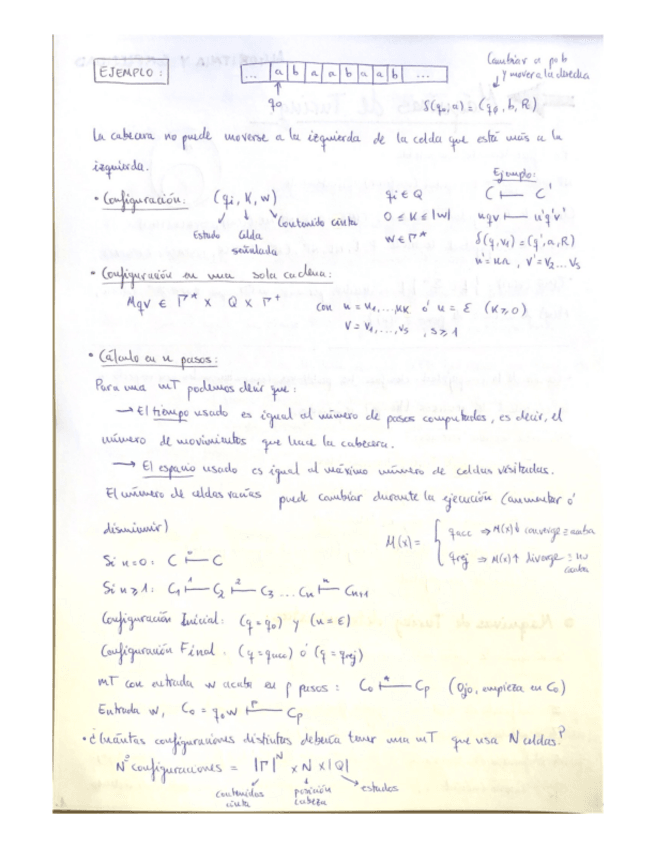 EJEMPLO:
... a b a a b a a b ...
q0
Cambiar a por b
y mover a la derecha
δ(q0, a) = (q0, b, R)
La cabecera no puede moverse a la izquierda de la celda que está más a la
izquierda.
• Configuración: (qi, K, w)
Estado Celda señalada Contenido cinta
qi ∈ Q
0 ≤ K ≤ |w|
w ∈ Γ*
Ejemplo:
C ⊢ C'
uqv ⊢ u'q'v'
δ(q, v1) = (q', a, R)
u' = ua, v' = v2...vs
• Configuración en una sola cadena:
uqv ∈ Γ* x Q x Γ+
con u = u1,...,uK ó u = ε (K ≥ 0)
v = v1,...,vs , s ≥ 1
• Cálculo en n pasos:
Para una mT podemos decir que:
→ El tiempo usado es igual al número de pasos computados, es decir, el
número de movimientos que hace la cabecera.
→ El espacio usado es igual al máximo número de celdas visitadas.
El número de celdas vacías puede cambiar durante la ejecución (aumentar ó
disminuir)
M(x) = { qacc ⇒ M(x)↓ converge ≡ acaba
qrej ⇒ M(x)↑ diverge ≡ no
acaba
Si n=0: C ⊢ C
Si n ≥ 1: C1 ⊢1 C2 ⊢2 C3 ... Cn ⊢n Cn+1
Configuración Inicial: (q = q0) y (u = ε)
Configuración Final: (q = qacc) ó (q = qrej)
mT con entrada w acaba en p pasos: C0 ⊢* Cp (Ojo, empieza en C0)
Entrada w, C0 = q0w ⊢p Cp
• ¿Cuántas configuraciones distintas debería tener una mT que usa N celdas?
Nº configuraciones = |Γ|^N x N x |Q|
contenidos cinta
posición cabeza
estados